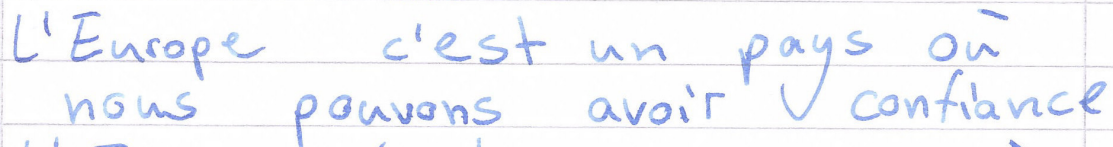 L'Europe c'est un pays où
nous pouvons avoir confiance